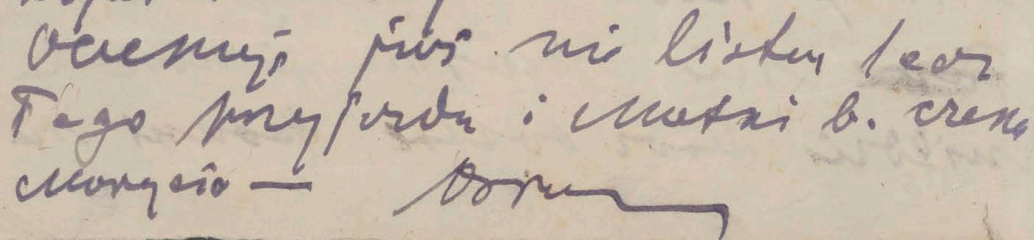 Oczekuję już nie listu lecz
Tego przyjazdu i Matki b. czeka
Marysia —